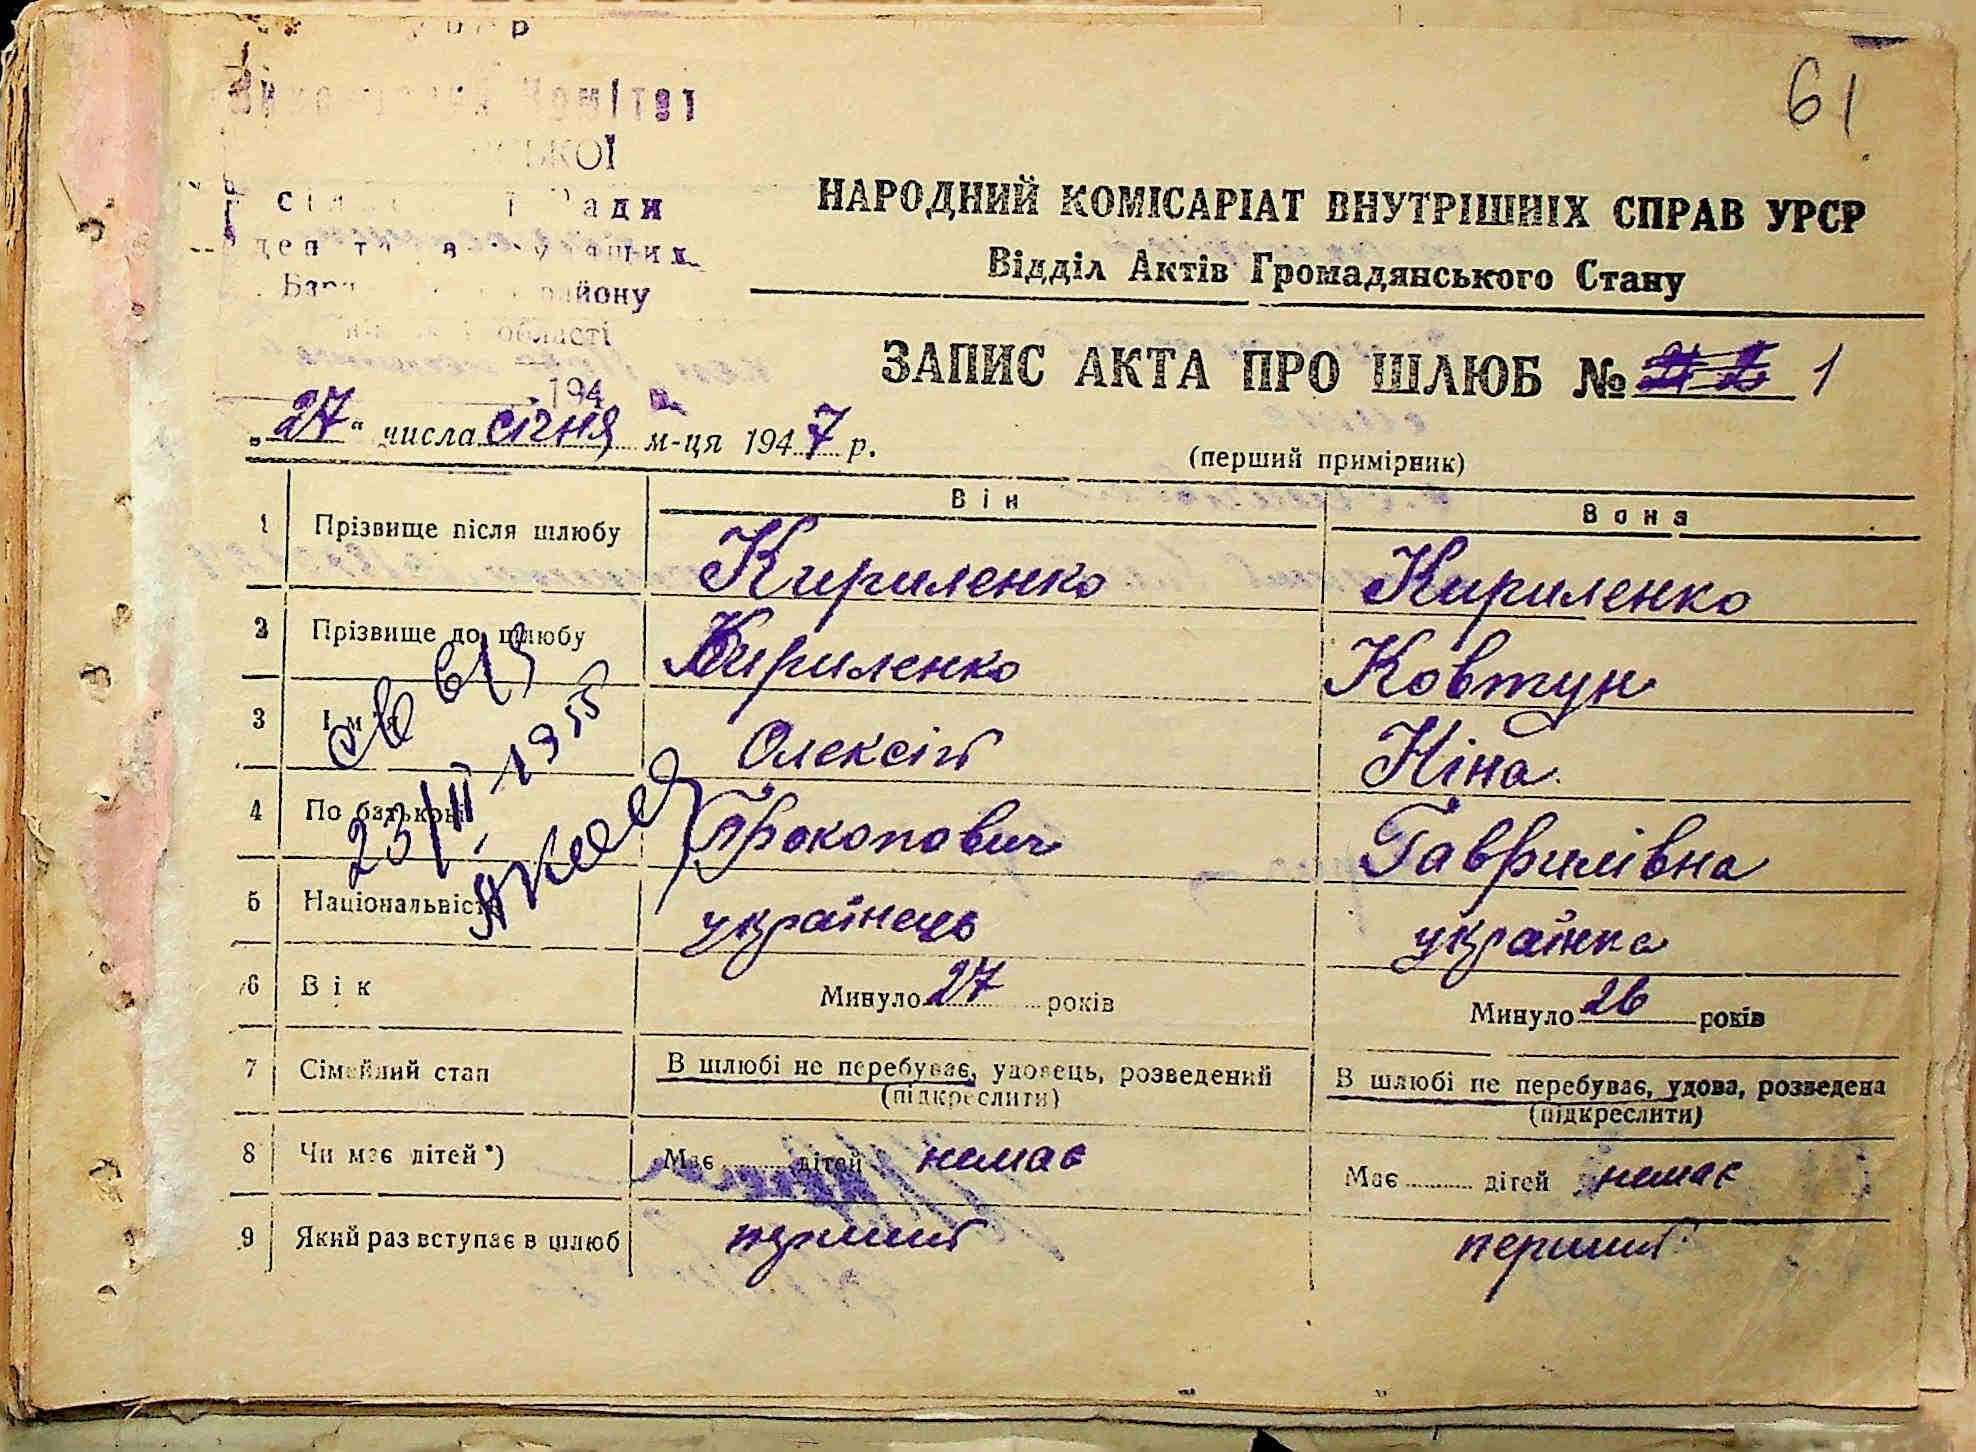 61
УРСР
Виконавчий Комітет
сільської Ради
районy
області
194
НАРОДНИЙ КОМІСАРІАТ ВНУТРІШНІХ СПРАВ УРСР
Відділ Актів Громадянського Стану
ЗАПИС АКТА ПРО ШЛЮБ № 1
„27" числа січня м-ця 1947 р.
(перший примірник)
Він Вона
1 Прізвище після шлюбу Кириленко Кириленко
2 Прізвище до шлюбу Кириленко Ковтун
3 Ім'я Олексій Ніна
4 По батькові Прокопович Гаврилівна
5 Національність українець українка
6 Вік Минуло 27 років Минуло 26 років
7 Сімейний стан В шлюбі не перебуває, удовець, розведений (підкреслити) В шлюбі не перебуває, удова, розведена (підкреслити)
8 Чи має дітей *) Має дітей немає Має дітей немає
9 Який раз вступає в шлюб перший перший
23/II-1955